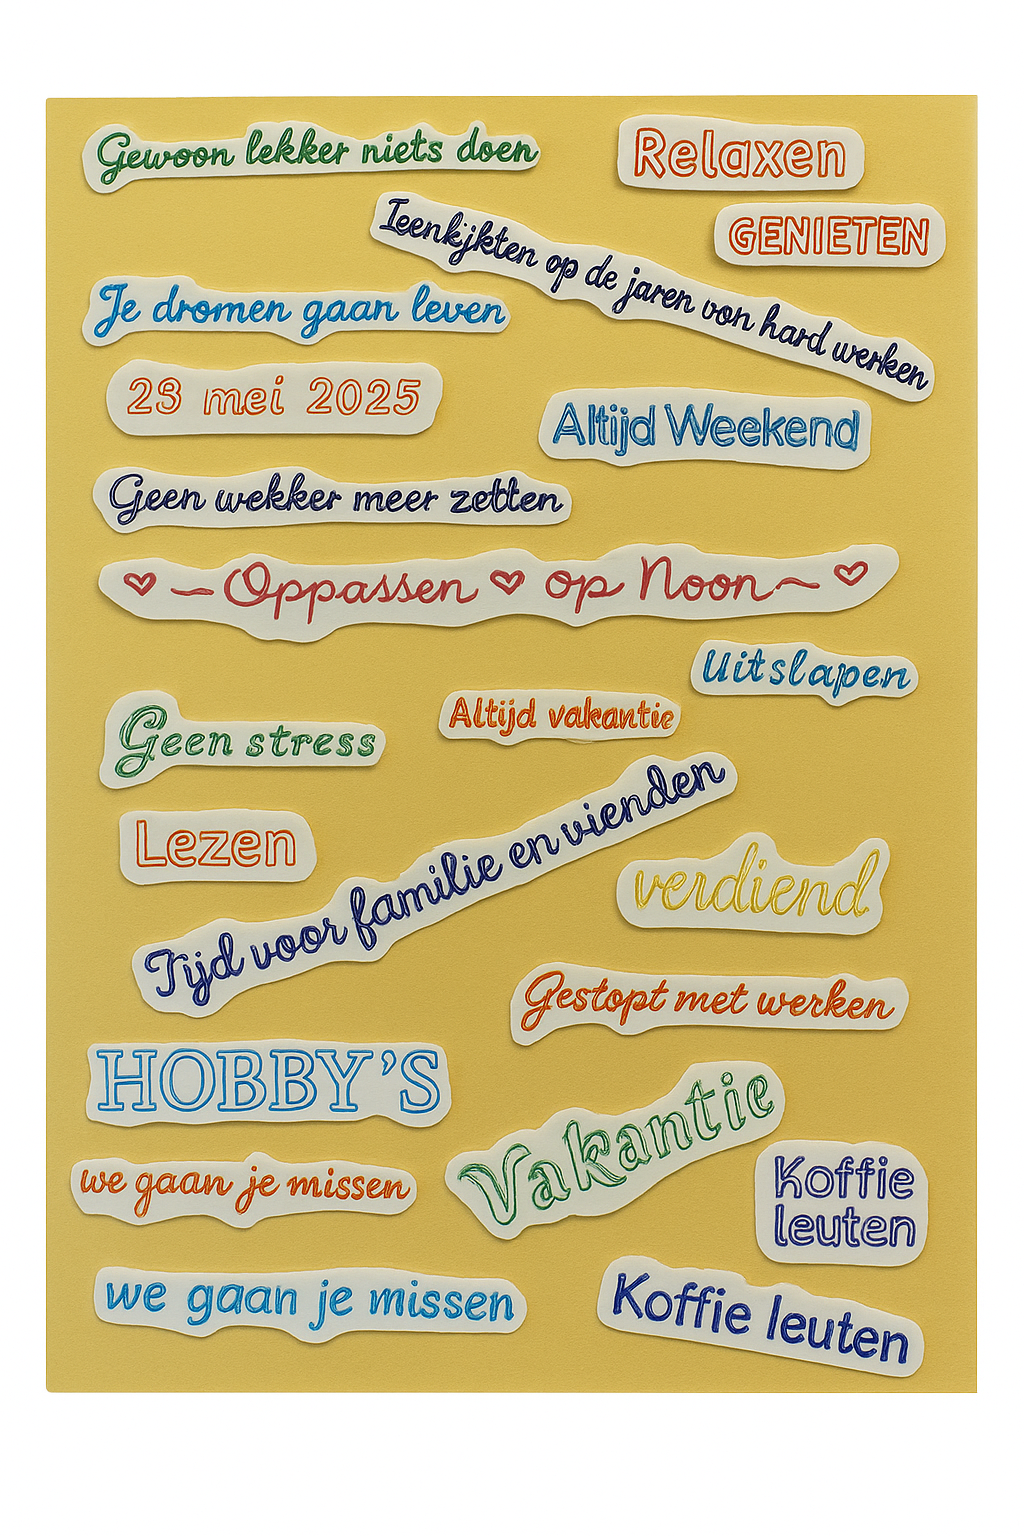 Gewoon lekker niets doen
Relaxen
GENIETEN
Ieenkjkten op de jaren von hard werken
Je dromen gaan leven
23 mei 2025
Altijd Weekend
Geen wekker meer zetten
Oppassen op Noon
Uitslapen
Altijd vakantie
Geen stress
Lezen
Tijd voor familie en vienden
verdiend
Gestopt met werken
HOBBY'S
Vakantie
we gaan je missen
Koffie
leuten
we gaan je missen
Koffie leuten